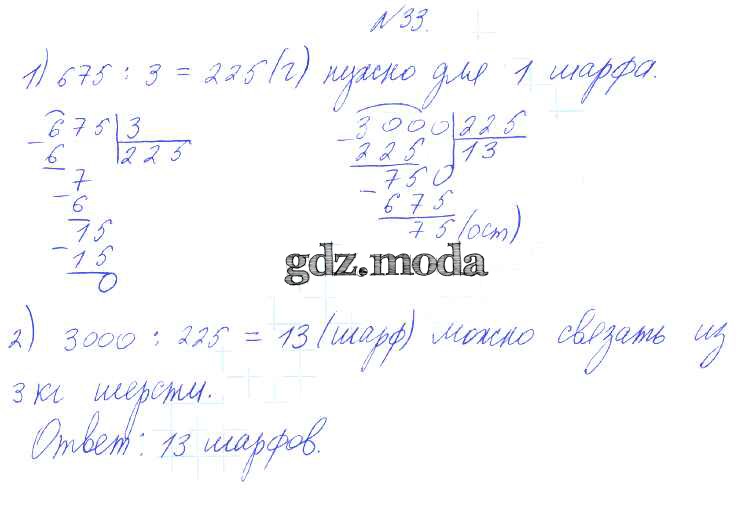 N33.
1) 675 : 3 = 225 (г) нужно для 1 шарфа.
675 | 3
- 6 | 225
7
- 6
15
- 15
0
3000 | 225
- 225 | 13
750
- 675
75 (ост)
gdz.moda
2) 3000 : 225 = 13 (шарф) можно связать из
3 кг шерсти.
Ответ: 13 шарфов.